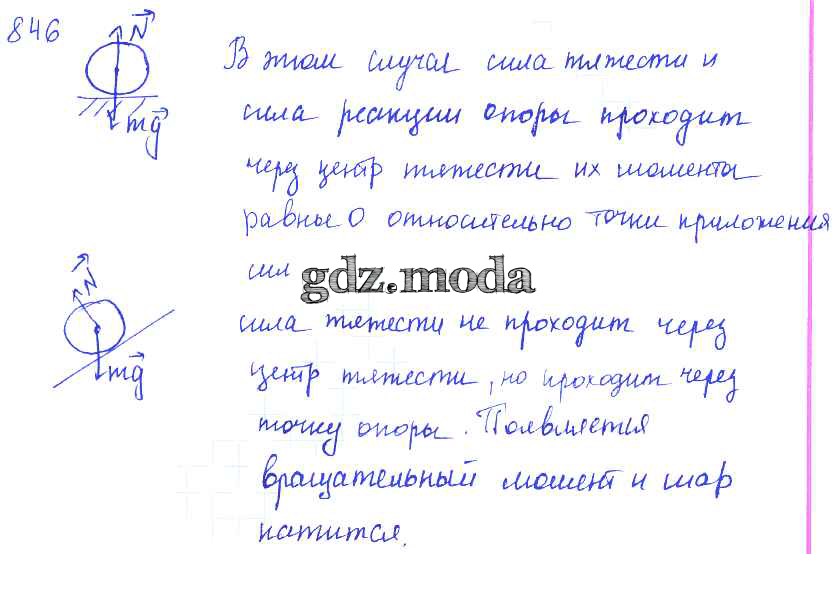 846
N
mg
В этом случае сила тяжести и
сила реакции опоры проходит
через центр тяжести их моменты
равные 0 относительно точки приложения
сил
gdz.moda
N
mg
сила тяжести не проходит через
центр тяжести, но проходит через
точку опоры. Появляется
вращательный момент и шар
катится.